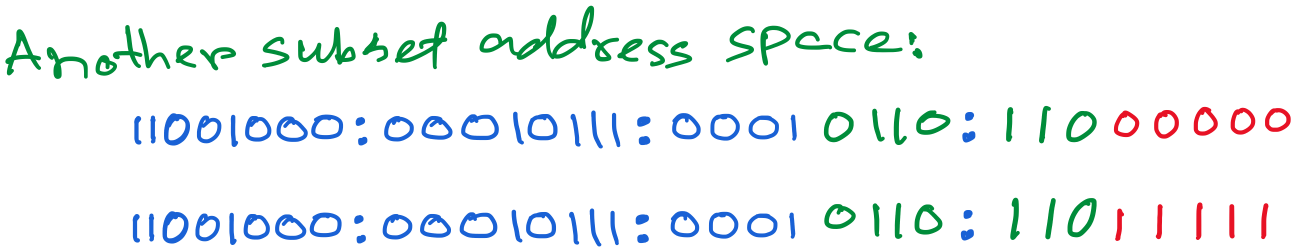 Another subset address space:
11001000:00010111:0001 0110:110 00000
11001000:00010111:0001 0110:110 11111